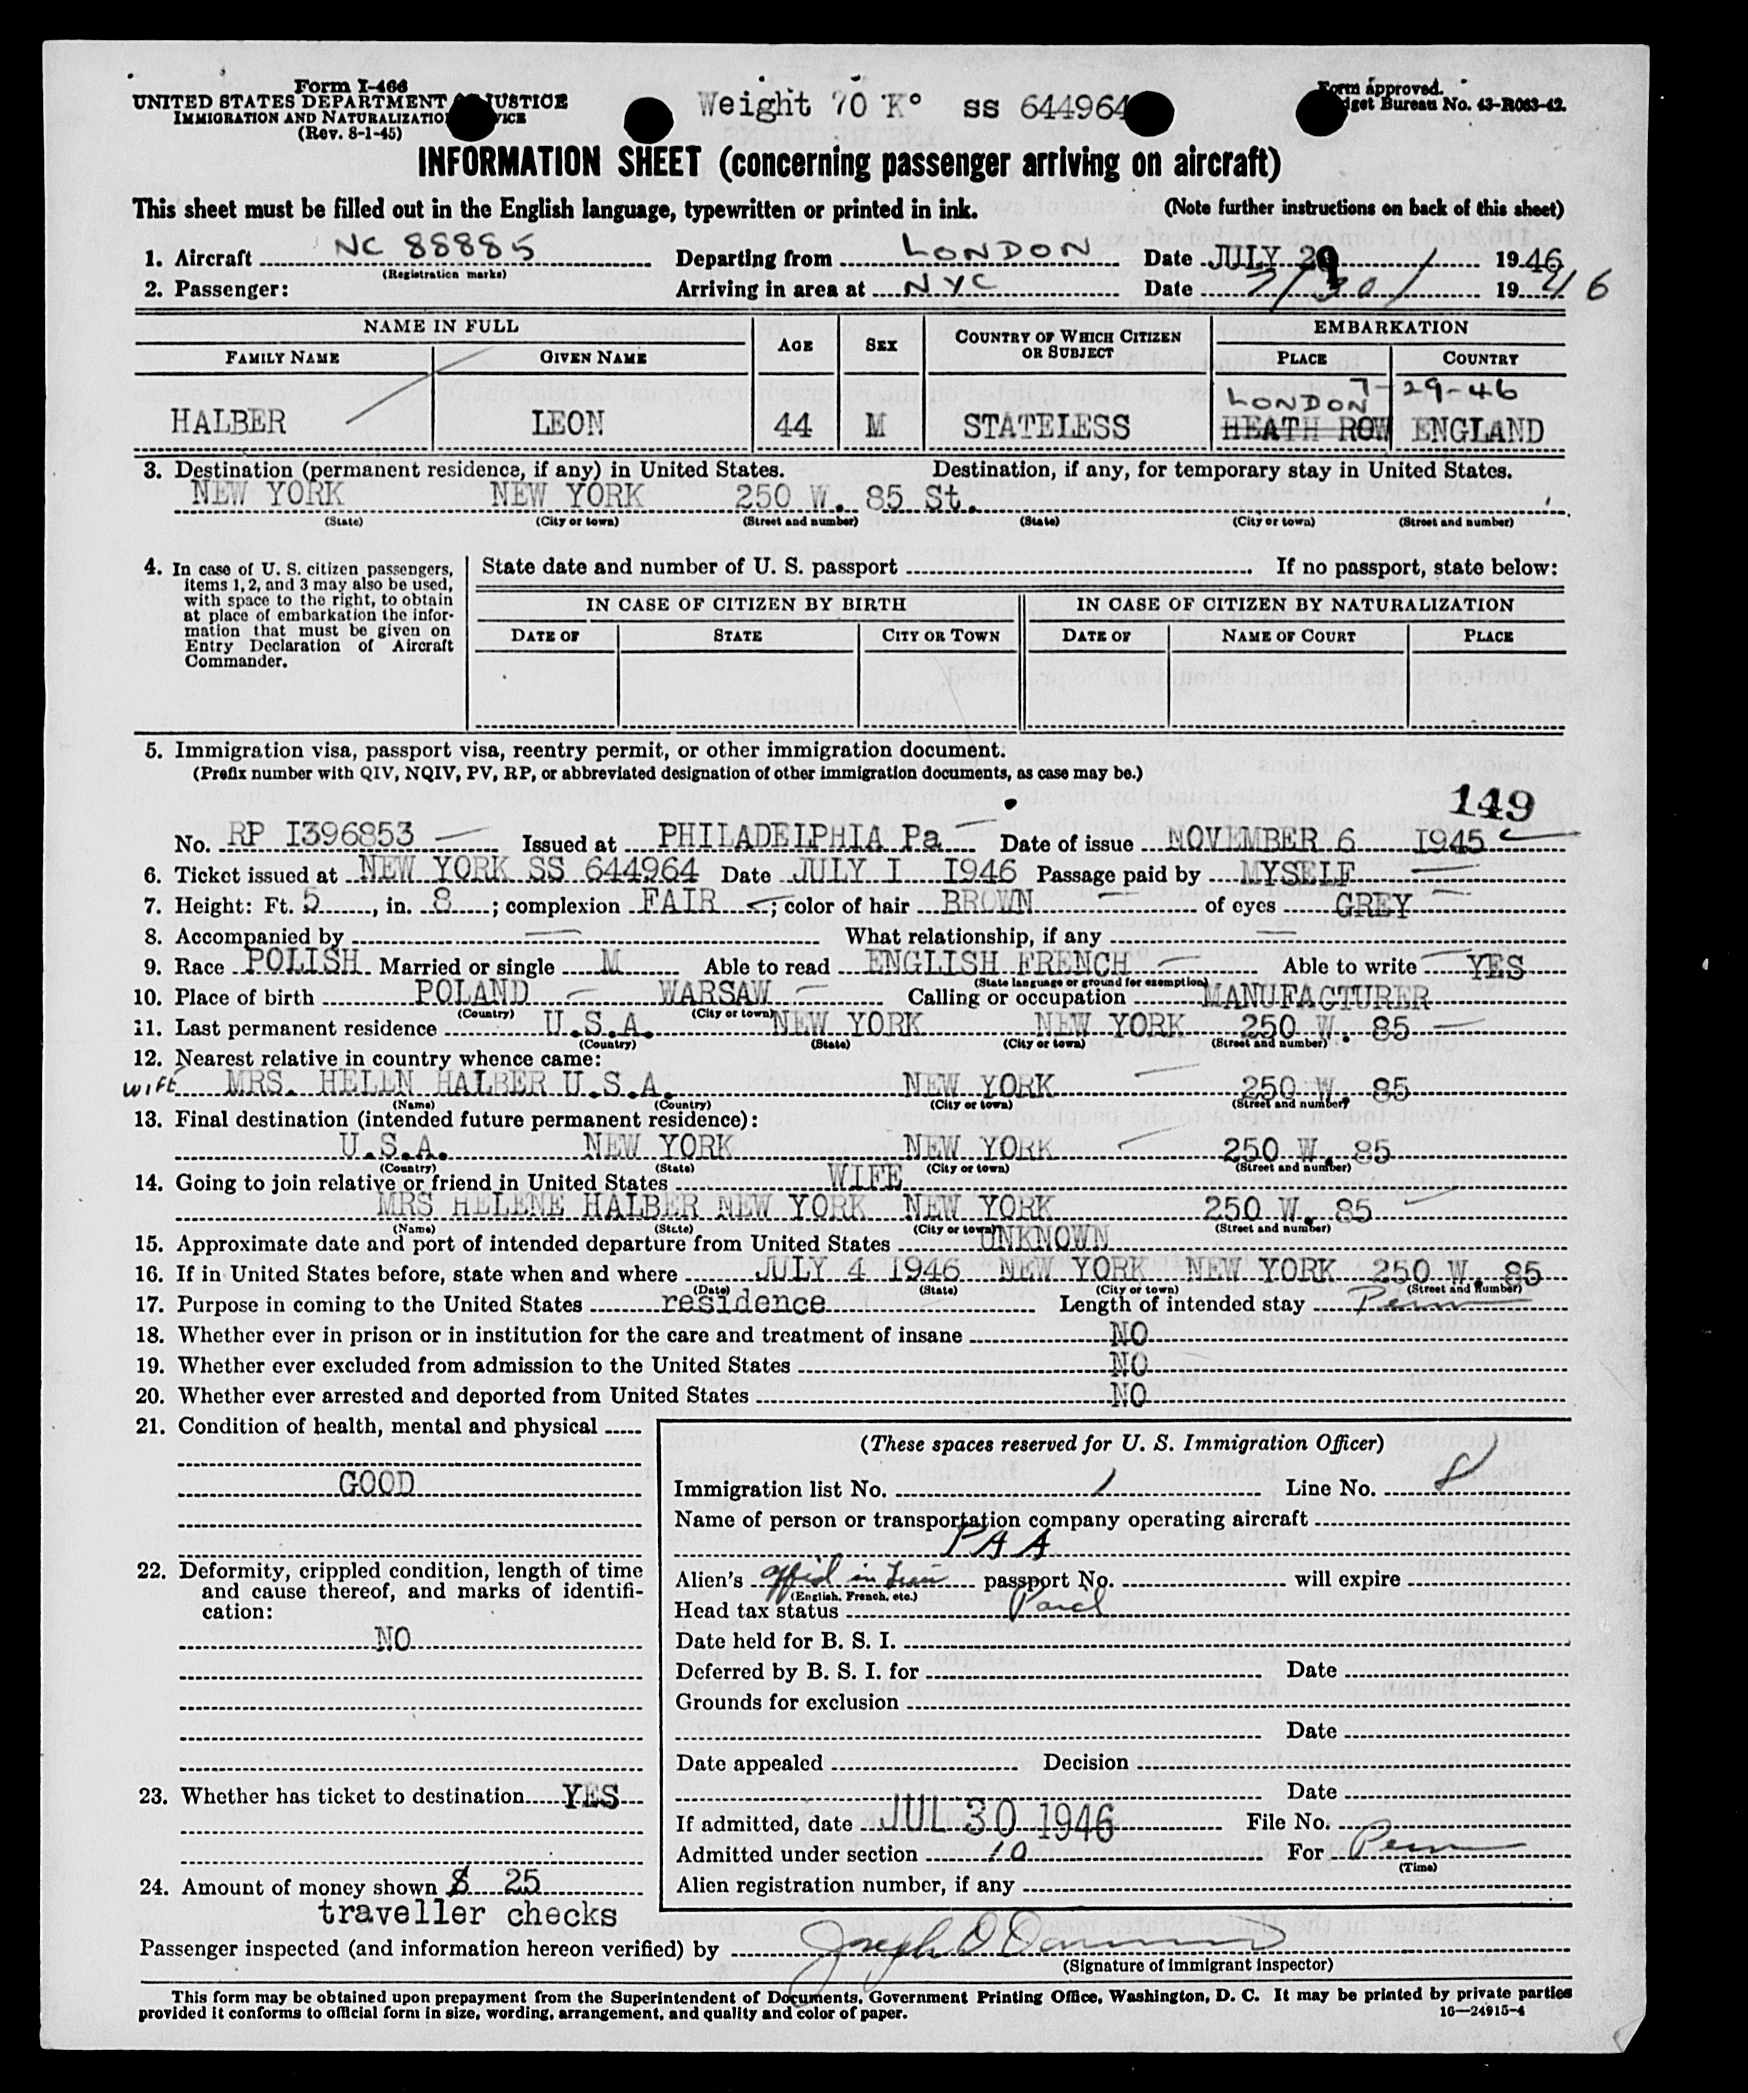 Form I-466
UNITED STATES DEPARTMENT JUSTICE
IMMIGRATION AND NATURALIZATION
(Rev. 8-1-45)
Weight 70 K° SS 644964
Form approved.
Budget Bureau No. 43-R083-42.
INFORMATION SHEET (concerning passenger arriving on aircraft)
This sheet must be filled out in the English language, typewritten or printed in ink. (Note further instructions on back of this sheet)
1. Aircraft NC 88885 Departing from LONDON Date JULY 29 1946
(Registration marks)
2. Passenger: Arriving in area at NYC Date 7/30/ 1946
NAME IN FULL AGE SEX COUNTRY OF WHICH CITIZEN OR SUBJECT EMBARKATION
FAMILY NAME GIVEN NAME PLACE COUNTRY
LONDON 7-29-46
HALBER LEON 44 M STATELESS HEATH ROW ENGLAND
3. Destination (permanent residence, if any) in United States. Destination, if any, for temporary stay in United States.
NEW YORK NEW YORK 250 W. 85 St.
(State) (City or town) (Street and number) (State) (City or town) (Street and number)
4. In case of U. S. citizen passengers, items 1, 2, and 3 may also be used, with space to the right, to obtain at place of embarkation the information that must be given on Entry Declaration of Aircraft Commander.
State date and number of U. S. passport If no passport, state below:
IN CASE OF CITIZEN BY BIRTH IN CASE OF CITIZEN BY NATURALIZATION
DATE OF STATE CITY OR TOWN DATE OF NAME OF COURT PLACE
5. Immigration visa, passport visa, reentry permit, or other immigration document.
(Prefix number with QIV, NQIV, PV, RP, or abbreviated designation of other immigration documents, as case may be.)
149
No. RP I396853 Issued at PHILADELPHIA Pa Date of issue NOVEMBER 6 1945
6. Ticket issued at NEW YORK SS 644964 Date JULY I 1946 Passage paid by MYSELF
7. Height: Ft. 5, in. 8; complexion FAIR; color of hair BROWN of eyes GREY
8. Accompanied by — What relationship, if any —
9. Race POLISH Married or single M Able to read ENGLISH FRENCH Able to write YES
(State language or ground for exemption)
10. Place of birth POLAND WARSAW Calling or occupation MANUFACTURER
(Country) (City or town)
11. Last permanent residence U.S.A. NEW YORK NEW YORK 250 W. 85
(Country) (State) (City or town) (Street and number)
12. Nearest relative in country whence came:
wife MRS. HELLN HALBER U.S.A. NEW YORK 250 W. 85
(Name) (Country) (City or town) (Street and number)
13. Final destination (intended future permanent residence):
U.S.A. NEW YORK NEW YORK 250 W. 85
(Country) (State) (City or town) (Street and number)
14. Going to join relative or friend in United States WIFE
MRS HELENE HALBER NEW YORK NEW YORK 250 W. 85
(Name) (State) (City or town) (Street and number)
15. Approximate date and port of intended departure from United States UNKNOWN
16. If in United States before, state when and where JULY 4 1946 NEW YORK NEW YORK 250 W. 85
(Date) (State) (City or town) (Street and Number)
17. Purpose in coming to the United States residence Length of intended stay Perm
18. Whether ever in prison or in institution for the care and treatment of insane NO
19. Whether ever excluded from admission to the United States NO
20. Whether ever arrested and deported from United States NO
21. Condition of health, mental and physical
GOOD
22. Deformity, crippled condition, length of time and cause thereof, and marks of identification:
NO
23. Whether has ticket to destination YES
24. Amount of money shown $ 25
traveller checks
(These spaces reserved for U. S. Immigration Officer)
Immigration list No. 1 Line No. 8
Name of person or transportation company operating aircraft
PAA
Alien's affid in lieu passport No. will expire
(English, French, etc.)
Head tax status Paid
Date held for B. S. I.
Deferred by B. S. I. for Date
Grounds for exclusion
Date
Date appealed Decision
Date
If admitted, date JUL 30 1946 File No.
Admitted under section 10 For Perm
(Time)
Alien registration number, if any
Passenger inspected (and information hereon verified) by Joseph D
(Signature of Immigrant Inspector)
This form may be obtained upon prepayment from the Superintendent of Documents, Government Printing Office, Washington, D. C. It may be printed by private parties
provided it conforms to official form in size, wording, arrangement, and quality and color of paper. 16—24915-4